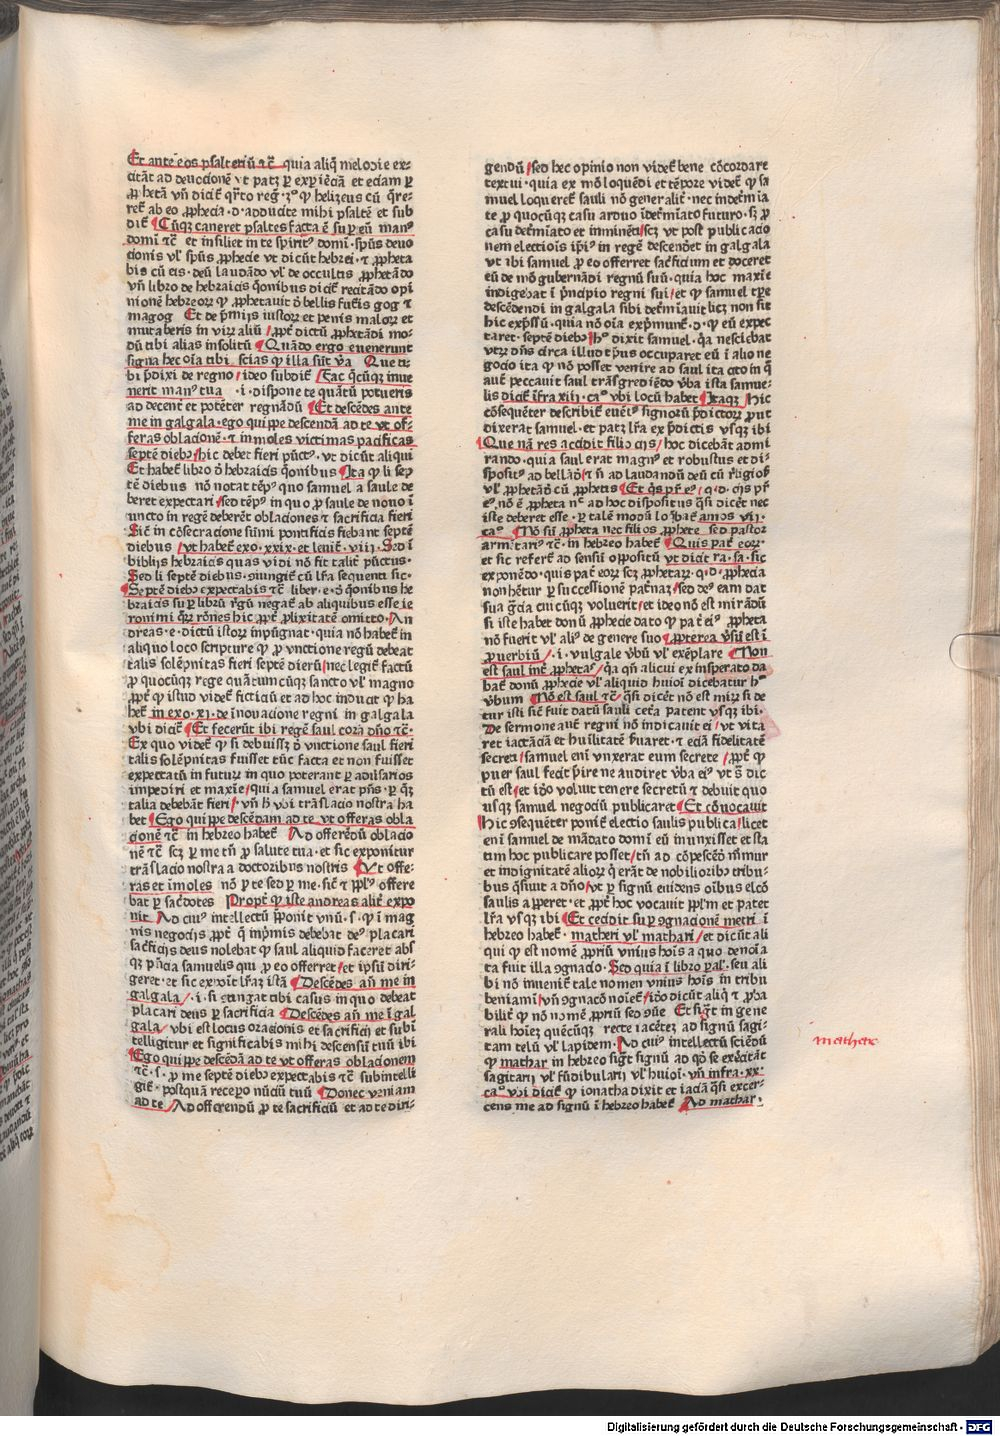 Et ante eos psalteriū ⁊c̄ quia aliq̄ melodie ex⸗
citāt ad deuocionē vt patz ꝑ exꝑiēciā et eciam ꝑ
ꝓphetā vn̄ dicit̄ q̄rto reḡ · 3° ꝙ helizeus cū q̄re⸗
ret̄ ab eo ꝓphecia · d · adducite mihi psaltē et sub
dit̄ Cūqꝫ caneret psaltes facta ē suꝑ eū manꝰ
domī ⁊c̄ et insiliet in te spiritꝰ domī · spūs deuo
cionis vl̄ spūs ꝓphecie vt dicūt hebrei · ⁊ ꝓpheta
bis cū eis · deū laudādo vl̄ de occultis ꝓphetādo
vn̄ libro de hebraicis q̄onibus dicit̄ recitādo opi
nionē hebreorꝝ ꝙ ꝓphetauit ð bellis fut̄is gog ⁊
magog Et de p̄mijs iustorꝝ et penis malorꝝ et
mutaberis in virꝝ aliū / ꝓpt̄ dictū ꝓphetādi mo⸗
dū tibi alias insolitū Quādo ergo euenerunt
signa hec oīa tibi · scias ꝙ illa sūt v̄a Que ti⸗
bi p̄dixi de regno / ideo subdit̄ / Fac q̄cūqꝫ inue
nerit manꝰ tua · i · dispone te quātū potueris
ad decent̄ et potēter regnādū Et descēdes ante
me in galgala · ego quippe descendā ad te vt of⸗
feras oblacionē · ⁊ inmoles victimas pacificas
septē diebꝫ / hic debet fieri pūctꝰ · vt dicūt aliqui
Et habet̄ libro ð hebraicis q̄onibus Ita ꝙ li sep
tē diebus nō notat tēpꝰ quo samuel a saule de
beret expectari / sed tēpꝰ in quo ꝓ saule de nouo ī
uncto in regē deberēt oblaciones ⁊ sacrificia fieri
Sic̄ in cōsecracione sūmi pontificis fiebant septē
diebus / vt habet̄ exo · xxix · et leuit̄ · viij · Sed ī
biblijs hebraicis quas vidi nō fit talit̄ pūctus ·
Sed li septē diebus · ꝯiungit̄ cū lr̄a sequenti sic ·
Septē diebꝫ expectabis ⁊c̄ liber · e · ð q̄onibus he
braicis suꝑ librū r̄gū negat̄ ab aliquibus esse ie
ronimi q̄rꝝ rōnes hic ꝓpt̄ ꝓlixitatē omitto · An
dreas · e · dictū istorꝝ inpugnat · quia nō habet̄ in
aliquo loco scripture ꝙ ꝓ vnctione regū debeat
talis solēpnitas fieri septē dierū / nec legit̄ factū
ꝓ quocūqꝫ rege quātumcūqꝫ sancto vl̄ magno
ꝓpt̄ ꝙ istud videt̄ ficticiū et ad hoc inducit ꝙ ha
bet̄ in exo · xj · de īnouacione regni in galgala
vbi dicit̄ Et fecerūt ibi regē saul corā dn̄o ⁊c̄ ·
Ex quo videt̄ ꝙ si debuissꝫ ð vnctione saul fieri
talis solēpnitas fuisset tūc facta et non fuisset
expectatū in futurꝝ in quo poterant ꝑ adūsarios
impediri et maxīe / quia samuel erat pn̄s · ꝑ q̄ꝫ
talia debebāt fieri / · vn̄ h̄ vbi trāslacio nostra ha
bet Ego quippe descēdam ad te vt offeras obla
cionē ⁊c̄ in hebreo habet̄ Ad offerēdū oblacio
nē ⁊c̄ scꝫ ꝑ me tn̄ ꝓ salute tua · et sic exponitur
trāslacio nostra a doctoribus nostris Vt offe⸗
ras et īmoles nō ꝑ te sed ꝑ me · sic̄ ⁊ ppl̄ꝰ offere
bat ꝑ sac̄dotes Propt̄ ꝙ iste andreas alit̄ expo
nit · Ad cuiꝰ intellectū p̄ponit vnū · s · ꝙ ī mag
nis negocijs ꝓpt̄ q̄ īnp̄mis debebat deꝰ placari
sac̄ficijs deus nolebat ꝙ saul aliquid faceret abs
qꝫ p̄ncia samuelis qui ꝓ eo offerret / et ip̄sū diri⸗
geret · et sic exponit lr̄aꝫ istā Descēdes an̄ me in
galgala / · i · si ꝯtingat tibi casus in quo debeat
placari deus ꝑ sacrificia Descēdes an̄ me ī gal
gala / vbi est locus oracionis et sacrificij et subī
telligitur et significabis mihi descensū tuū ibi
Ego quippe descēdā ad te vt offeras oblacionem
⁊c̄ · s · ꝑ me septē diebꝫ expectabis ⁊c̄ subintelli
git̄ · postquā recepo nūciū tuū Donec veniam
ad te / Ad offerendū ꝓ te sacrificiū et ad te diri⸗
gendū / sed hec opinio non videt̄ bene cōcordare
textui · quia ex mō loquēdi et tēpore videt̄ ꝙ sa
muel loqueret̄ sauli nō generalit̄ · nec indet̄mīa
te ꝓ quocūqꝫ casu arduo īdet̄mīato futuro · sꝫ ꝓ
casu det̄mīato et imminēti / scꝫ vt post publicacio
nem electionis ip̄iꝰ in regē descenderet in galgala
vt ibi samuel ꝓ eo offerret sac̄ficium et doceret
eū de mō gubernādi regnū suū · quia hoc maxīe
indigebat ī p̄ncipio regni sui / et ꝙ samuel tꝑe
descēdendi in galgala sibi det̄mīauit licꝫ non sit
hic exp̄ssū · quia nō oīa exp̄munt̄ · d · ꝙ eū expec
taret · septē diebꝫ / hꝰ dixit samuel · q̄a nesciebat
vtrꝝ dn̄s circa illud tp̄us occuparet eū ī alio ne
gocio ita ꝙ nō posset venire ad saul ita cito in q̄
aut̄ peccauit saul trāsgrediēdo v̄ba ista samue⸗
lis dicit̄ īfra xiij · caᵒ vbi locū habet Itaqꝫ Hic
cōsequēter describit̄ euētꝰ signorū p̄dictorꝝ ꝓut
dixerat samuel · et patꝫ lr̄a ex p̄dictis vsqꝫ ibi
Que nā res accidit filio cis / hoc dicebāt admi
rando · quia saul erat magnꝰ et robustus et di⸗
spositꝰ ad bellādū / ⁊ n̄ ad laudandū deū cū r̄ligiosꝫ
vl̄ ꝓphetādū cū ꝓphetis Et q̄s pr̄ eꝰ / q · d · cis pr̄
eꝰ · nō ē ꝓpheta nᶜ ad hoc dispositus q̄si dicēt nec
iste deberet esse · ꝑ talē modū loq̄bat̄ amos vij ·
caᵒ Nō sū ꝓpheta nec filiꝰ ꝓphete sed pastor
armētariꝰ ⁊c̄ · in hebreo habet̄ Quis pat̄ eorꝝ ·
et sic refert̄ ad sensū oppositū vt dicit ra · sa · sic
exponēdo · quis pat̄ eorꝝ scꝫ ꝓphetarꝝ · q · d · ꝓphecia
non hētur ꝑ successionē pat̄naꝫ / sed deꝰ eam dat
sua gr̄cia cuicūqꝫ voluerit / et ideo nō est mirādū
si iste habet donū ꝓphecie dato ꝙ pat̄ eiꝰ ꝓpheta
nō fuerit vl̄ aliꝰ de genere suo Ꝓpterea v̄sū est ī
ꝓuerbiū / · i · vulgale v̄bū vl̄ exēplare Non
est saul int̄ ꝓphetas / q̄a qn̄ alicui ex insperato da
bat̄ donū ꝓphecie vl̄ aliquid huiōi dicebatur hᵒ
v̄bum Nō est saul ⁊c̄ / q̄si dicēt nō est mirꝝ si de
tur isti sic̄ fuit datū sauli cet̄a patent vsqꝫ ibi ·
De sermone aut̄ regni nō indicauit ei / vt vita
ret iactāciā et huīlitatē f̄uaret · ⁊ eciā fidelitatē
secreti / samuel eni̅ vnxerat eum secrete / ꝓpt̄ ꝙ
puer saul fecit p̄ire ne audiret v̄ba eiꝰ vt s̄ dic
tū est / et iō volu̇it tenere secretū ⁊ debuit quo
usqꝫ samuel negociū publicaret Et cōuocauit
Hic ꝯsequēter ponit̄ electio saulis publica / licet
eni̅ samuel de mādato domī eū inunxisset et sta
tim hoc publicare posset / tn̄ ad cōpescēdū m̄mur
et indignitatē aliorꝝ q̄ erāt de nobiliorib꜒ tribu⸗
bus q̄siuit a dn̄o / vt ꝑ signū euidens oībus elcō
saulis aꝑperet · et ꝓpt̄ hoc vocauit ppl̄m et patet
lr̄a vsqꝫ ibi Et cecidit suꝑ ꝯgnacionē metri ī
hebreo habet̄ · matheri vl̄ mathari / et dicūt ali
qui ꝙ est nomē ꝓpriū vniꝰ hoīs a quo denoīa
ta fuit illa ꝯgnacio · Sed quia ī libro ꝑal̄ · seu ali
bi nō inuenit̄ tale nomen vnius hoīs in tribu
beniamī / vn̄ ꝯgnacō noīet̄ / iō dicūt aliq̄ ⁊ ꝓba
bilit̄ ꝙ nō nomē ꝓpriū sed ꝯūe Et siḡt in gene
rali hoīeꝫ quēcūqꝫ recte iacētꝫ ad signū sagi⸗
tam telū vl̄ lapidem · Ad cuiꝰ intellectū sciēdū
ꝙ mathar in hebreo siḡt signū ad qð se exc̄itāt
sagitarij vl̄ fūdibularij vl̄ huiōi · vn̄ infra · xx ·
caᵒ vbi dicit̄ ꝙ ionatha dixit et iaciā q̄si exer⸗
cens me ad signū ī hebreo habet̄ Ad mathar ·
mathere
Digitalisierung gefördert durch die Deutsche Forschungsgemeinschaft - DFG